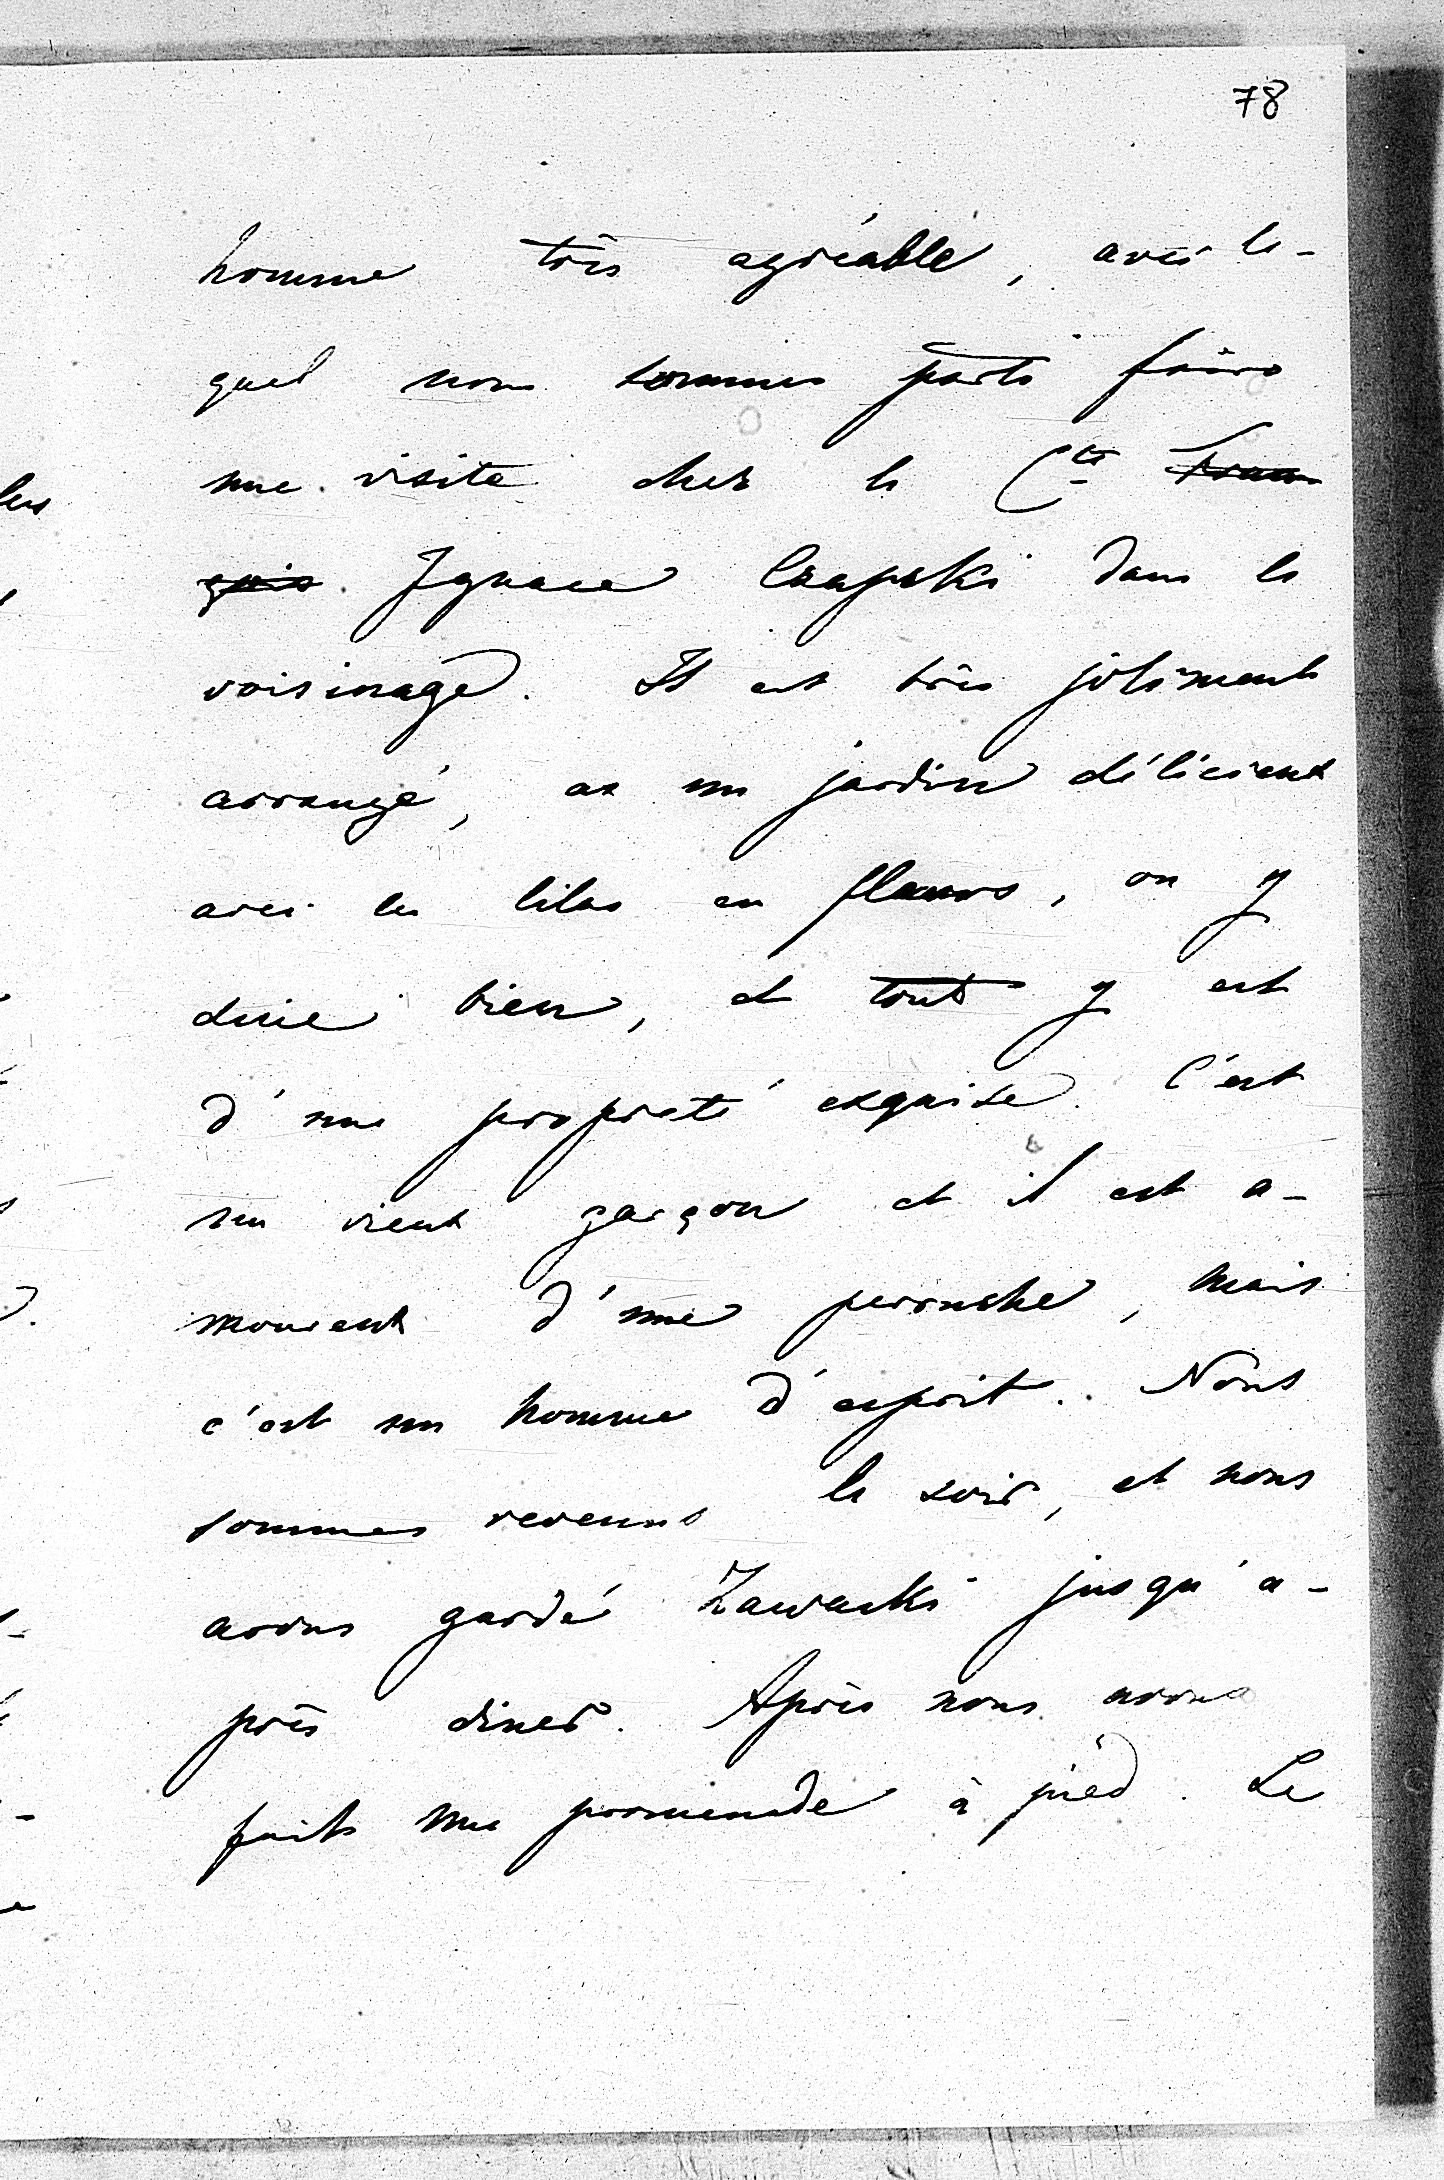 78
homme très agréable, avec le-
quel nous sommes parti faire
une visite chez le Cte Fran
çois Ignace Czapski dans le
voisinage. Il est très joliment
arrangé, a un jardin délicieux
avec les lilas en fleurs, on y
dine bien, et tout y est
d'une propreté exquise. C'est
un vieux garçon et il est a-
moureux d'une perruche, mais
c'est un homme d'esprit. Nous
sommes revenus le soir, et nous
avons gardé Zawacki jusqu'a-
près diner. Après nous avons
faits une promenade à pied. Le